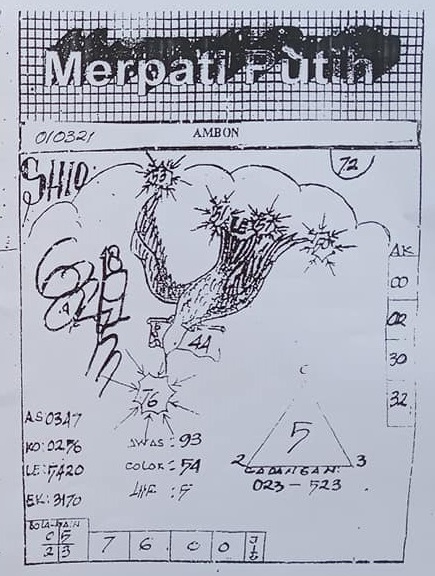 Merpati Putih
010321
AMBON
SHIO:
72
53
51
LE 57
AK
00
02
30
32
18
K
44
76
AS:0347
KO:0276
LE:5420
EK:3170
AWAS : 93
COLOK : 54
LHF : 5
C
5
2 3
CADANGAN
023 - 523
BOLA-MAIN
0 5
2 3
7 6 0 0 JITU